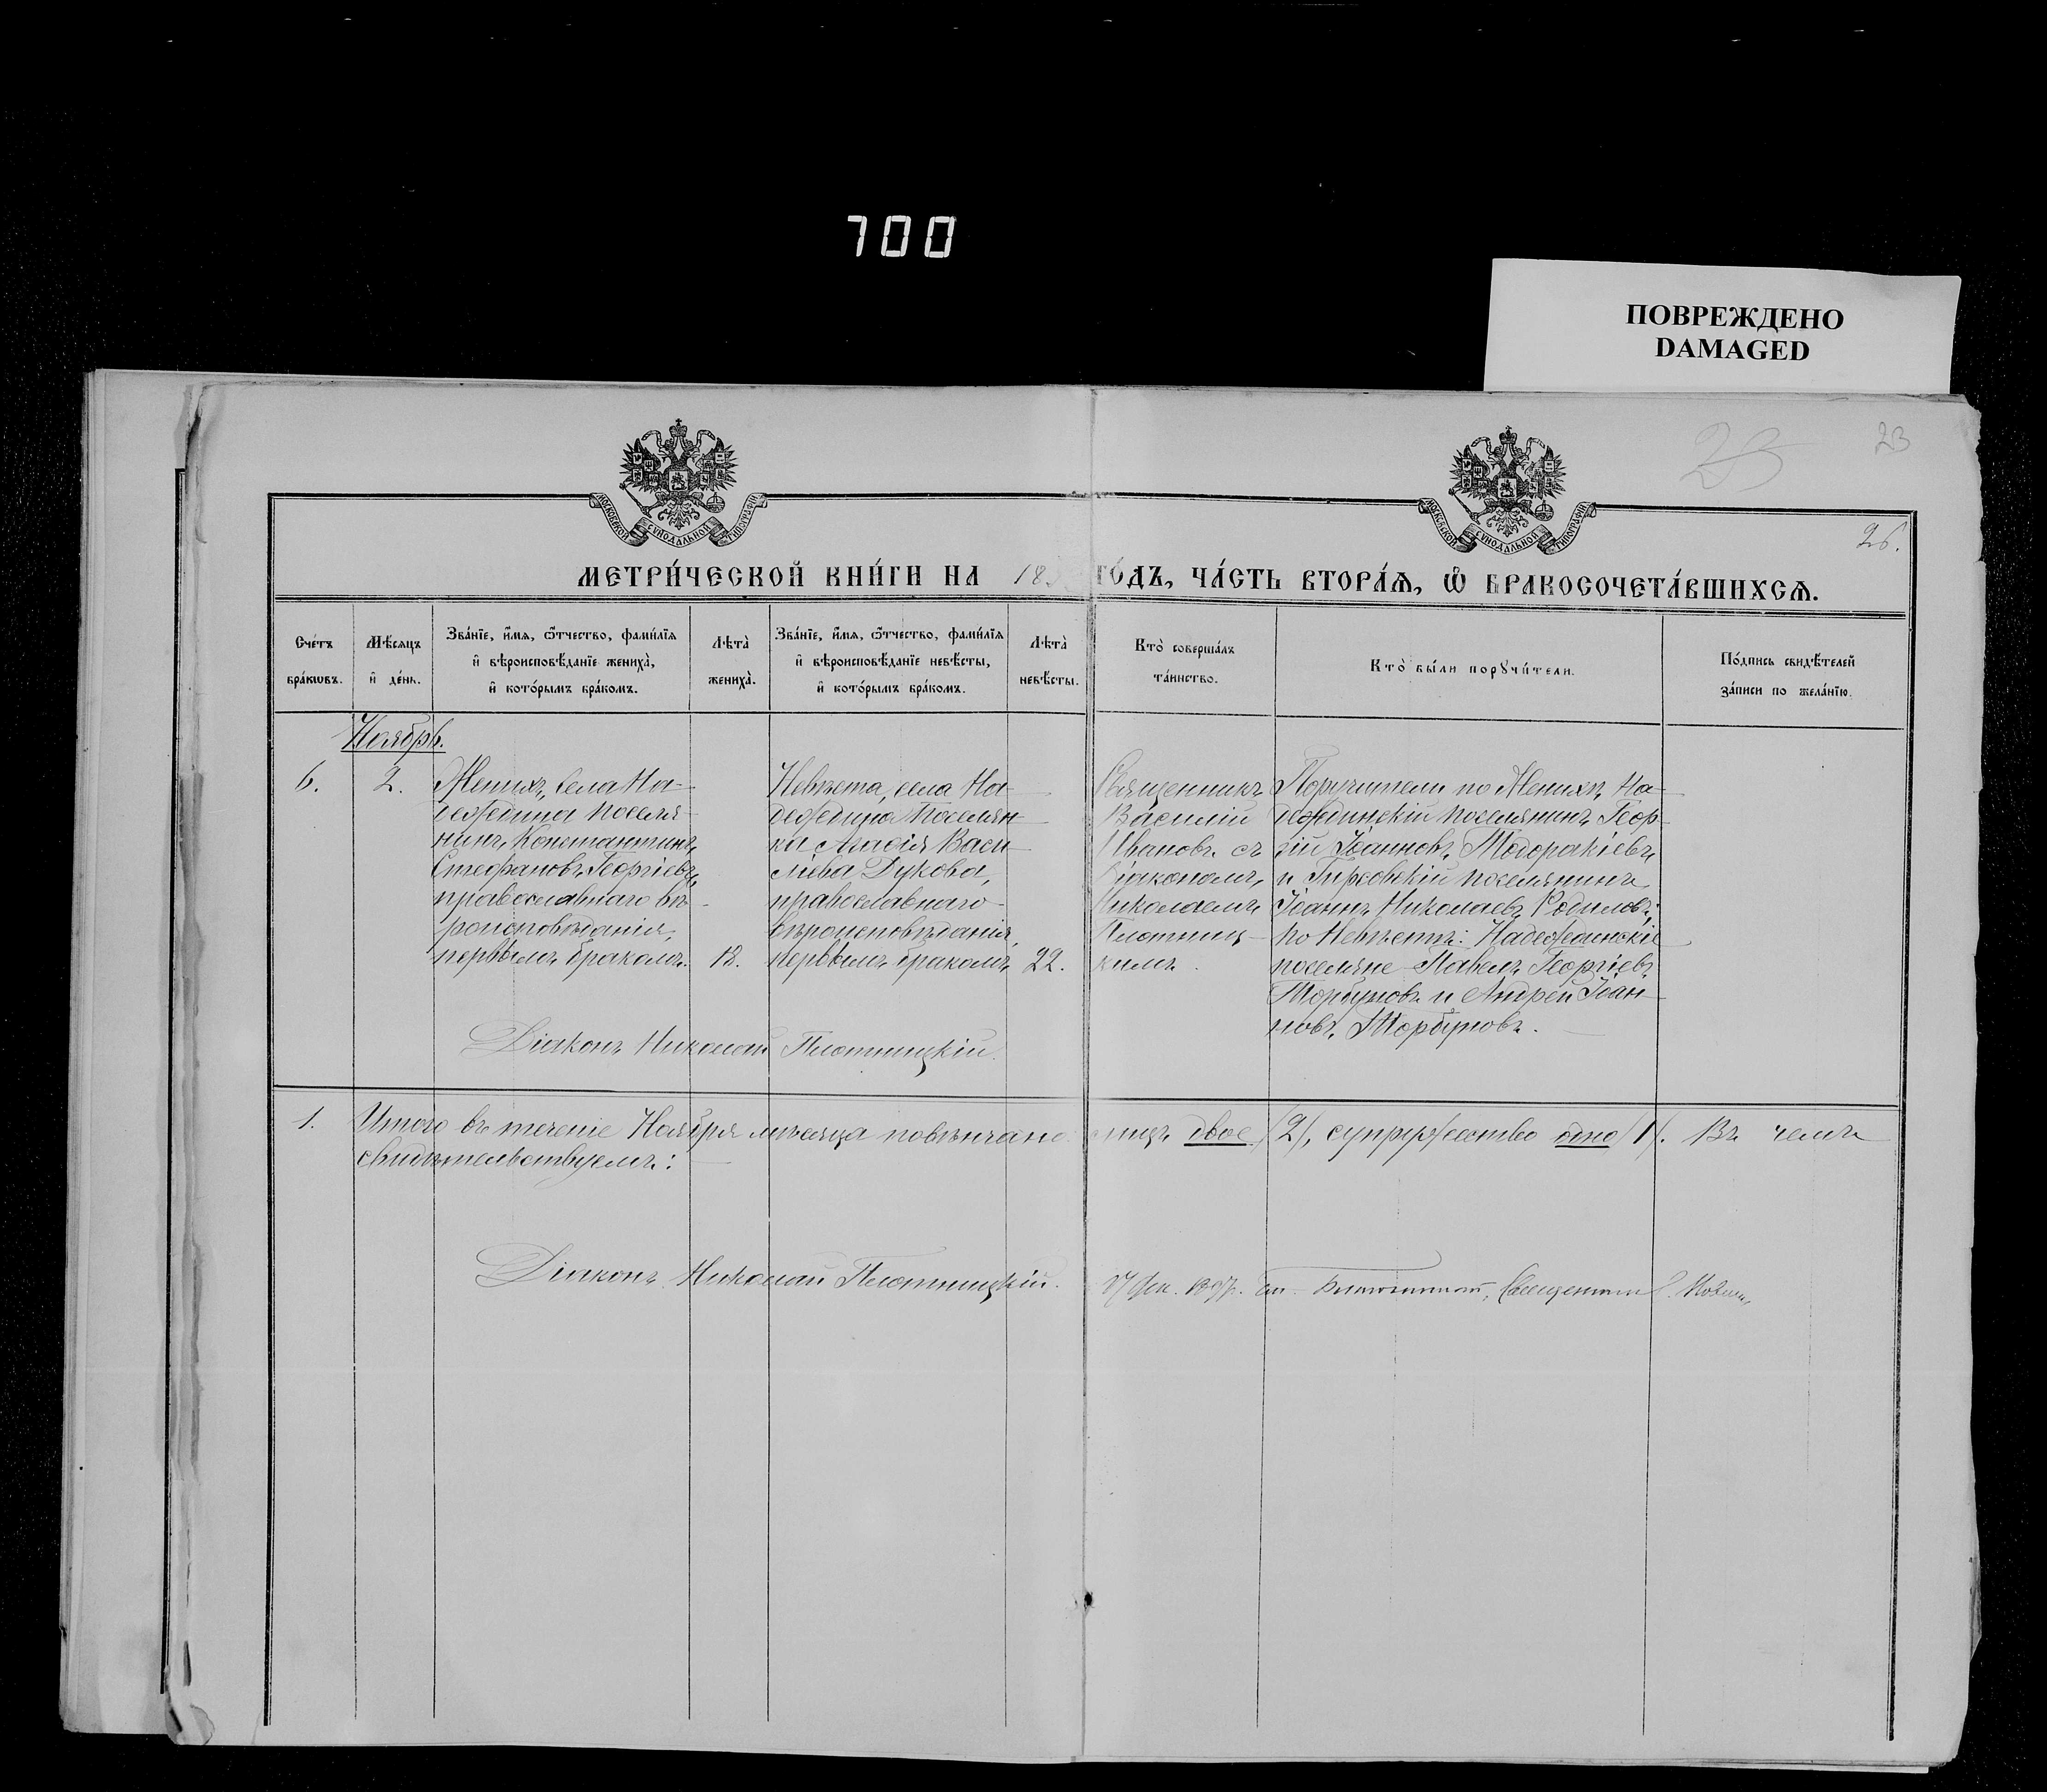 700
ПОВРЕЖДЕНО
DAMAGED
23
23
26.
МОСКОВСКОЙ СѴНОДАЛЬНОЙ ТИПОГРАФІИ
МОСКОВСКОЙ СѴНОДАЛЬНОЙ ТИПОГРАФІИ
МЕТРИ́ЧЕСКОЙ КНИ́ГИ НА 18 ГО́ДЪ, ЧА́СТЬ ВТОРА́Ѧ, Ѡ҆ БРАКОСОЧЕТА́ВШИХСѦ.
Сче́тъ
бра́кѡвъ.
Мѣ́сяцъ
и҆ де́нь.
Зва́нїе, и҆́мя, ѻ҆́тчество, фами́лїя
и҆ вѣроисповѣ́данїе жениха̀,
и҆ кото́рымъ бра́комъ.
Лѣта̀
жениха̀.
Зва́нїе, и҆́мя, ѻ҆́тчество, фами́лїя
и҆ вѣроисповѣ́данїе невѣ́сты,
и҆ кото́рымъ бра́комъ.
Лѣта̀
невѣ́сты.
Кто̀ соверша́лъ
та́инство.
Кто̀ бы́ли порꙋчи́тели.
По́дпись свидѣ́телей
за́писи по жела́нїю.
Ноябрь.
6.
2.
Женихъ, села На-
деждина поселя-
нинъ Константинъ
Стефановъ Георгіевъ,
православнаго вѣ-
роисповѣданія,
первымъ бракомъ.
18.
Невѣста, села На-
деждина поселян-
ка Васи-
ліева Дукова,
православнаго
вѣроисповѣданія,
первымъ бракомъ.
22.
Священникъ
Василій
Ивановъ съ
діакономъ
Николаемъ
Плотниц-
кимъ.
Поручители по Женихѣ: На-
деждинскій поселянинъ Геор-
гій Іоанновъ Тодоракіевъ
и поселянинъ
Іоаннъ Николаевъ
по Невѣстѣ: Надеждинскіе
поселяне Павелъ Георгіевъ
и Андрей Іоан-
новъ
Діаконъ Николай Плотницкій.
1.
Итого въ теченіе Ноября мѣсяца повѣнчано лицъ двое /2/, супружество одно /1/. Въ чемъ
свидѣтельствуемъ:
Діаконъ Николай Плотницкій.
Священникъ